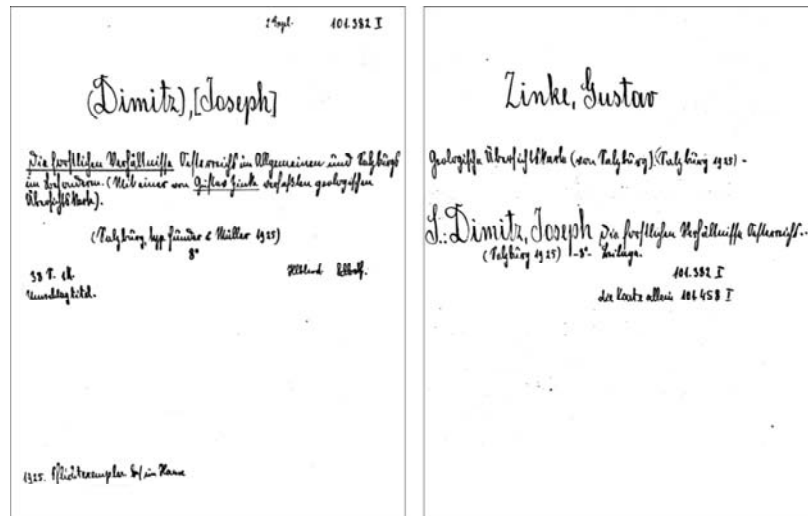 2 Expl. 101.382 I
(Dimitz), [Joseph]
Die forstlichen Verhältnisse Österreichs im Allgemeinen und Salzburgs
im besonderen. (Mit einer von Gustav Zinke verfaßten geologischen
Übersichtskarte).
(Salzburg, typ. Funder & Müller 1925)
8°
38 S. 1 K.
Umschlagtitel.
1925. Pflichtexemplar
Zinke, Gustav
Geologische Übersichtskarte (von Salzburg). (Salzburg 1925) -
S.: Dimitz, Joseph Die forstlichen Verhältnisse Österreichs..
(Salzburg 1925) -8°- Beilage.
101.382 I
die Karte allein 101458 I